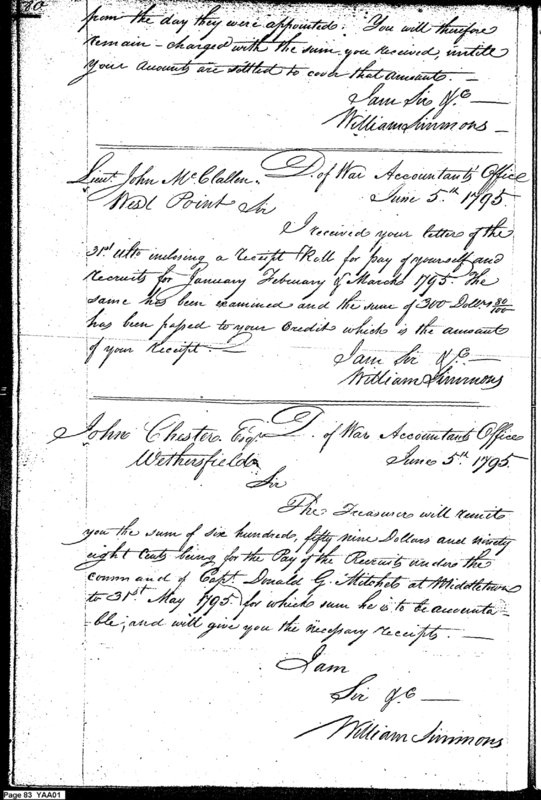 80
from the day they were appointed. You will therefore
remain - charged with the sum you received, untill
your accounts are settled to cover that amount. —
I am Sir &c —
William Simmons —
Lieut. John McClallen. D. of War Accountants Office
West Point Sir June 5.th 1795
I received your letter of the
31st ulto enclosing a receipt Roll for pay of yourself and
recruits for January February & March 1795. The
same has been examined and the sum of 300 Dollars 80/100
has been passed to your Credit which is the amount
of your receipt. —
I am Sir &c —
William Simmons
John Chester Esqr D. of War Accountants Office
Wethersfield June 5.th 1795.
Sir
The Treasurer will remit
you the sum of six hundred, fifty nine Dollars and ninety
eight Cents being for the Pay of the Recruits under the
command of Capt. Donald G. Mitchels at Middletown
to 31st May 1795. for which sum he is to be accounta-
ble, and will give you the necessary receipts. —
I am
Sir &c —
William Simmons
Page 83 YAA01